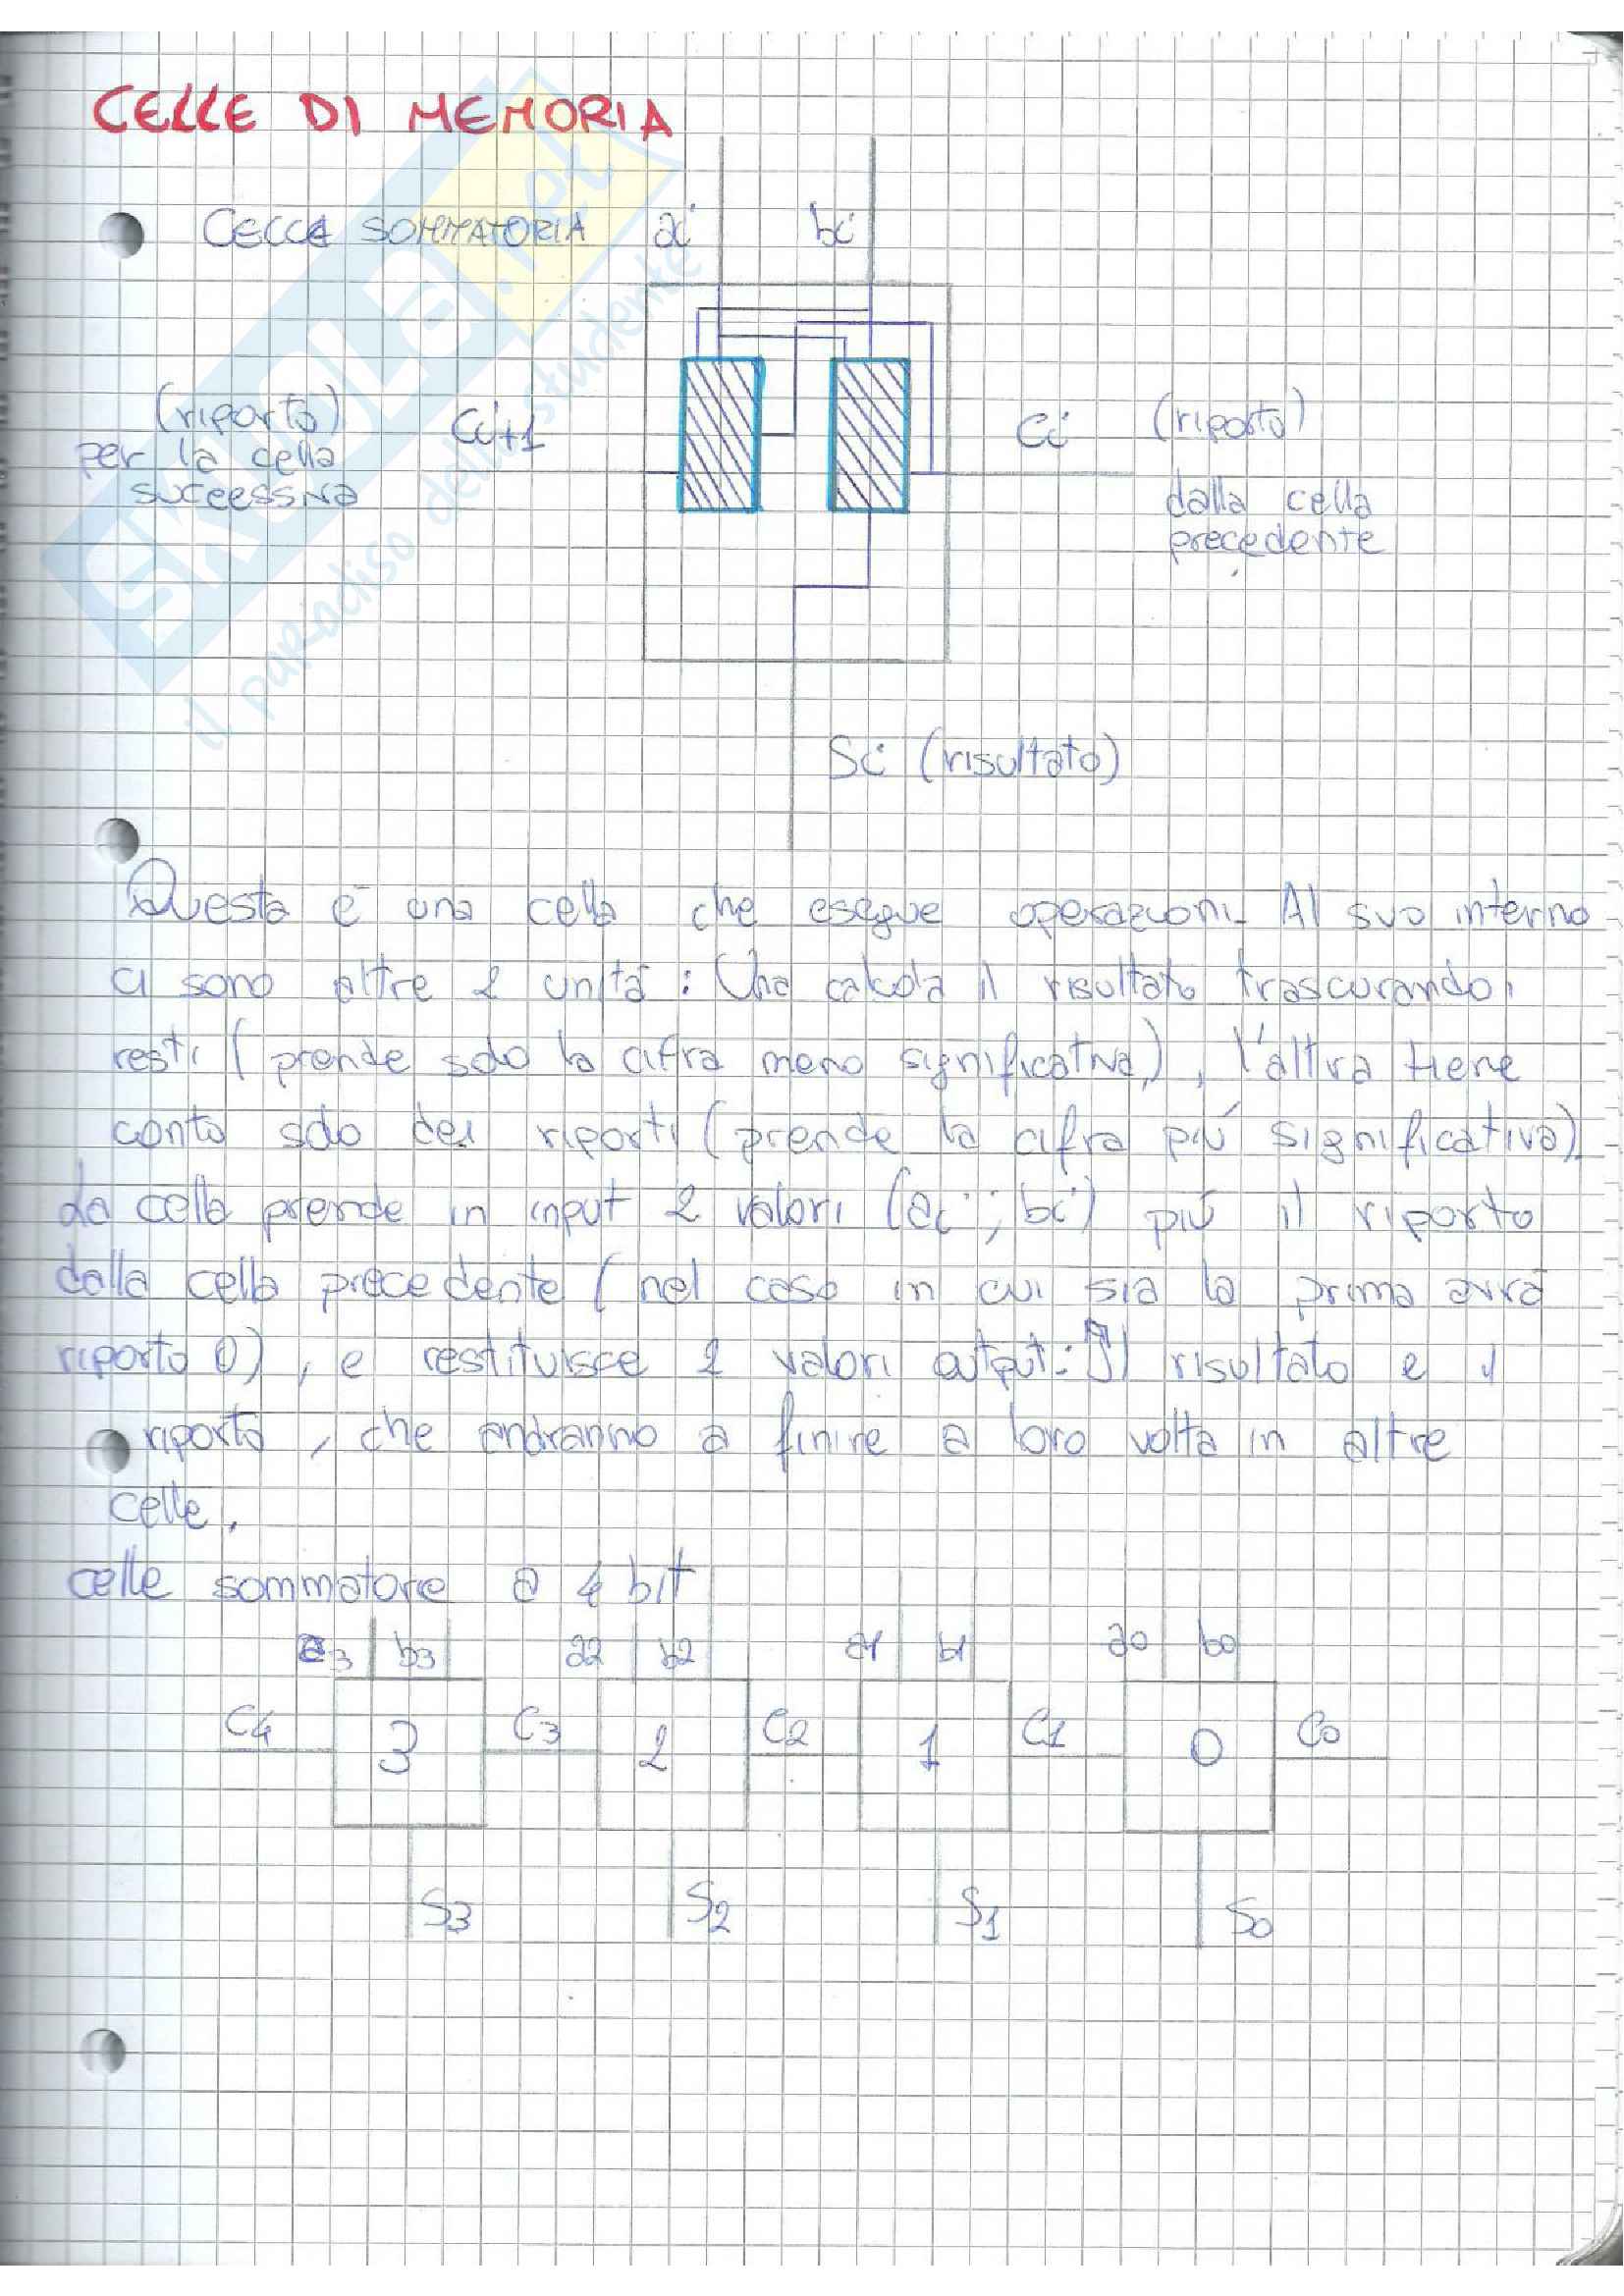 CELLE DI MEMORIA
CELLA SOMMATORIA ai bi
(riporto)
per la cella
successiva
Ci+1
Ci
(riporto)
dalla cella
precedente
Si (risultato)
Questa è una cella che esegue operazioni. Al suo interno
ci sono altre 2 unità: Una calcola il risultato trascurando i
resti (prende solo la cifra meno significativa), l'altra tiene
conto solo dei riporti (prende la cifra più significativa)
La cella prende in input 2 valori (ai; bi) più il riporto
dalla cella precedente (nel caso in cui sia la prima avrà
riporto 0), e restituisce 2 valori output: Il risultato e il
riporto, che andranno a finire a loro volta in altre
celle.
celle sommatorie a 4 bit
a3 b3 a2 b2 a1 b1 a0 b0
C4 3 C3 2 C2 1 C1 0 C0
S3 S2 S1 S0
SKUOLA.net
il paradiso dello studente